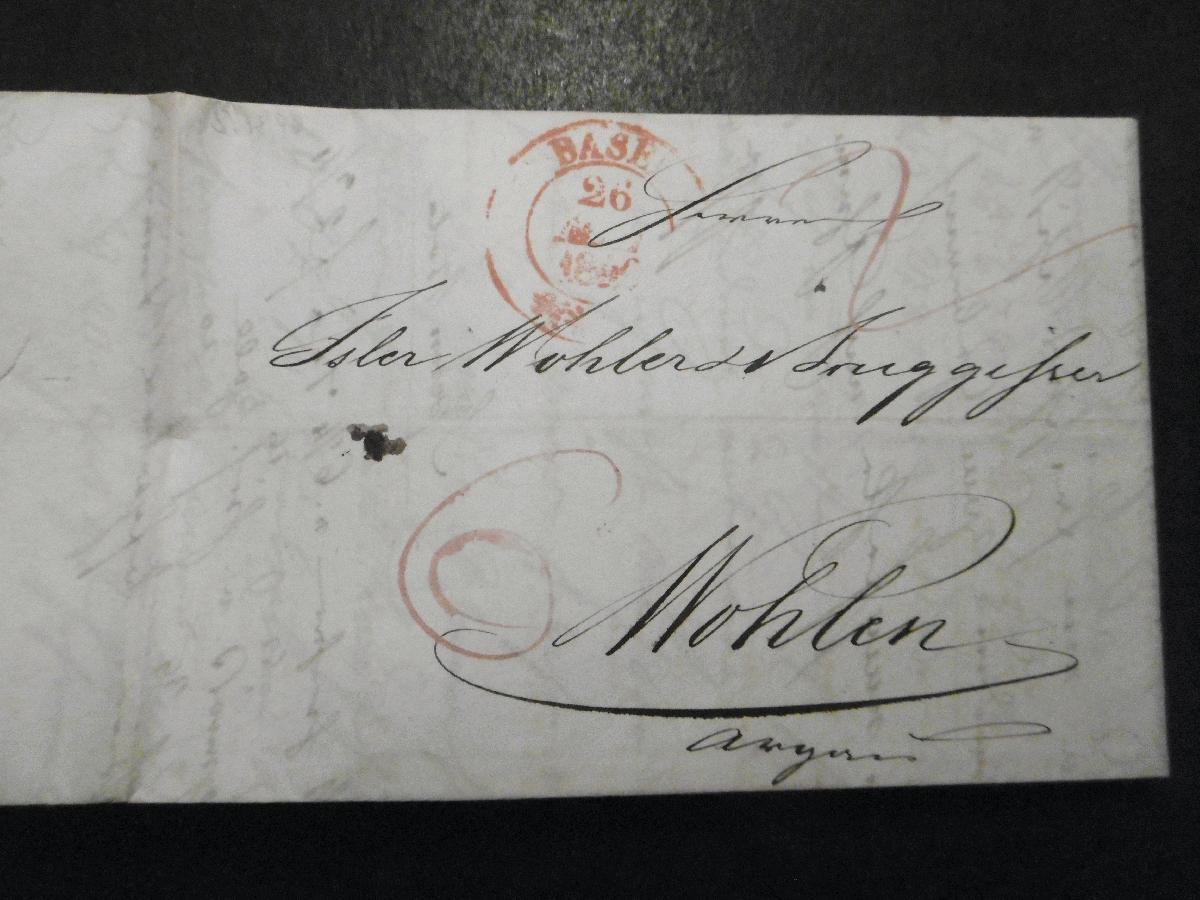 BASE
26
Herren
Isler Wohler & Bruggisser
Wohlen
Argau